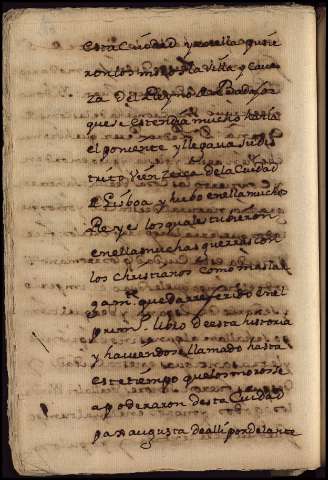 esta Ciudad y en ella pusie
ron los moros la villa y cave
za del Reyno de Badajoz
que se estendia mucho hacia
el poniente y llegava su dis
trito vien zerca de la Ciudad
de Lisboa y hubo en ella muchos
Reyes los quales tubieron
en ella muchas guerras con
los christianos como mas lar
gamte. queda referido en el
primro. libro de esta historia
y haviendose llamado hasta
este tiempo que los moros se
apoderaron desta Ciudad
pax augusta de alli por delante